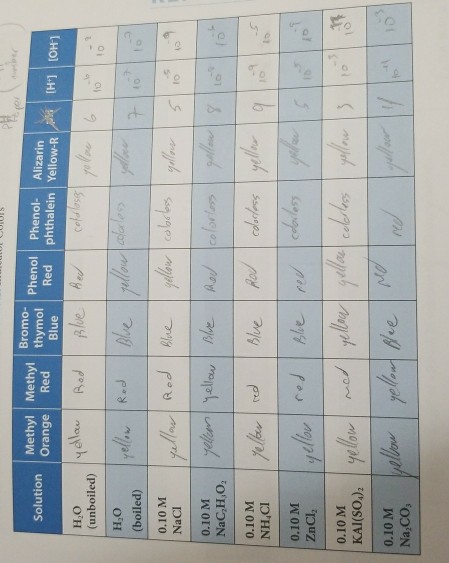 Solution Methyl Orange Methyl Red Bromo-thymol Blue Phenol Red Phenol-phthalein Alizarin Yellow-R [H⁺] [OH⁻]
H₂O (unboiled) yellow Red Blue Red colorless yellow 6 10⁻⁶
H₂O (boiled) yellow Red Blue yellow colorless yellow 7 10⁻⁷
0.10 M NaCl yellow Red Blue yellow colorless yellow 5 10⁻⁵ 10⁻⁹
0.10 M NaC₂H₃O₂ yellow yellow Blue Red colorless yellow 8 10⁻⁶
0.10 M NH₄Cl yellow red Blue Red colorless yellow 9 10⁻⁹ 10⁻⁵
0.10 M ZnCl₂ yellow red Blue red colorless yellow 5 10⁻⁵ 10⁻⁹
0.10 M KAl(SO₄)₂ yellow red yellow yellow colorless yellow 3 10⁻³
0.10 M Na₂CO₃ yellow yellow Blue red red yellow 11 10⁻¹¹ 10⁻³